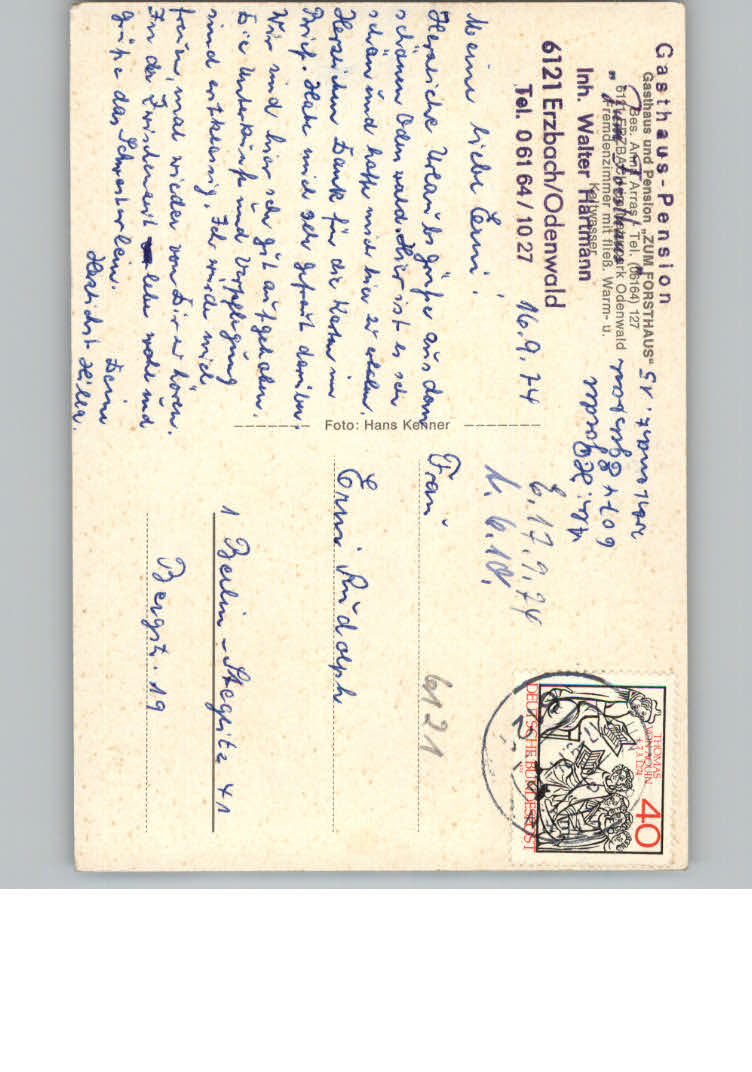 Gasthaus-Pension
Gasthaus und Pension „ZUM FORSTHAUS"
Bes. Anna Arras, Tel. (06164) 127
6121 ERZBACH, Naturpark Odenwald
Fremdenzimmer mit fließ. Warm- u.
Kaltwasser
„Zum Forsthaus"
Inh. Walter Hartmann
6121 Erzbach/Odenwald
Tel. 0 61 64 / 10 27
16.9.74
Meine liebe Erni!
Herzliche Urlaubsgrüße aus dem
schönen Odenwald. Hier ist es sehr
schön und hoffe mich hier zu erholen.
Herzlichen Dank für die Karte u.
Brief. Habe mich sehr gefreut darüber.
Wir sind hier sehr gut aufgehoben.
Die Unterkünfte und Verpflegung
sind erstklassig. Ich würde mich
freuen, mal wieder von Dir zu hören.
In der Zwischenzeit lebe wohl und
grüße das Schwesterlein.
Herzlichst Deine
Hilla.
Foto: Hans Kenner
6074
15
E. 17.9.74
Frau
Erni Rudolph
1 Berlin-Steglitz 41
Bergstr. 19
6121
THOMAS
VON AQUIN
† 7.3.1274
40
DEUTSCHE BUNDESPOST